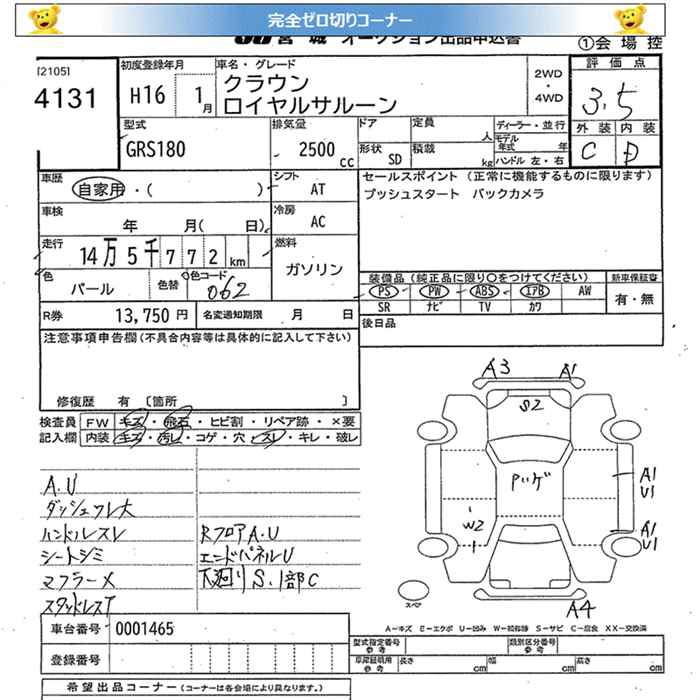 完全ゼロ切りコーナー
宮城 オークション出品申込書
①会場控
[2105]
4131
初度登録年月
H16 1月
車名・グレード
クラウン
ロイヤルサルーン
2WD
・
4WD
評価点
3.5
外装 内装
C D
型式
GRS180
排気量
2500cc
ドア
定員
人
ディーラー・並行
形状
SD
積載
kg
モデル年式 年
ハンドル 左・右
車歴
自家用・( )
シフト
AT
車検
年 月( 日)
冷房
AC
走行
14万5千772km
燃料
ガソリン
色
パール
色替
色コード
062
R券
13,750円
名変通知期限 月 日
セールスポイント (正常に機能するものに限ります)
プッシュスタート バックカメラ
装備品(純正品に限り○をつけてください)
新車保証書
PS PW ABS エアB AW
SR ナビ TV カワ
有・無
後日品
注意事項申告欄(不具合内容等は具体的に記入して下さい)
修復歴 有 [箇所 ]
検査員記入欄
FW キズ・飛石・ヒビ割・リペア跡・×要
内装 キズ・汚レ・コゲ・穴・スレ・キレ・破レ
A.U
ダッシュワレ大
ハンドルスレ
シートシミ
マフラーメ
スタッドレスT
RフロアA.U
エンドパネルU
下廻りS.1部C
A3 A1
S2
Pハゲ
A1
U1
W2
A1
U1
スペア
A4
A−キズ E−エクボ U−凹み W−補修跡 S−サビ C−腐食 XX−交換済
車台番号 0001465
登録番号
型式指定番号
類別区分番号
車庫証明用参考
長さ cm
幅 cm
高さ cm
希望出品コーナー(コーナーは各会場により異なります。)